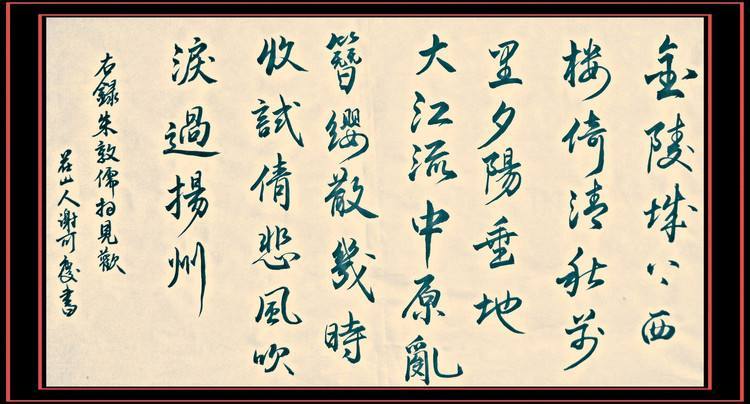 金陵城上西
楼倚清秋萬
里夕陽垂地
大江流中原亂
簪纓散幾時
收試倩悲風吹
淚過揚州
右録朱敦儒相見歡
山人谢可書